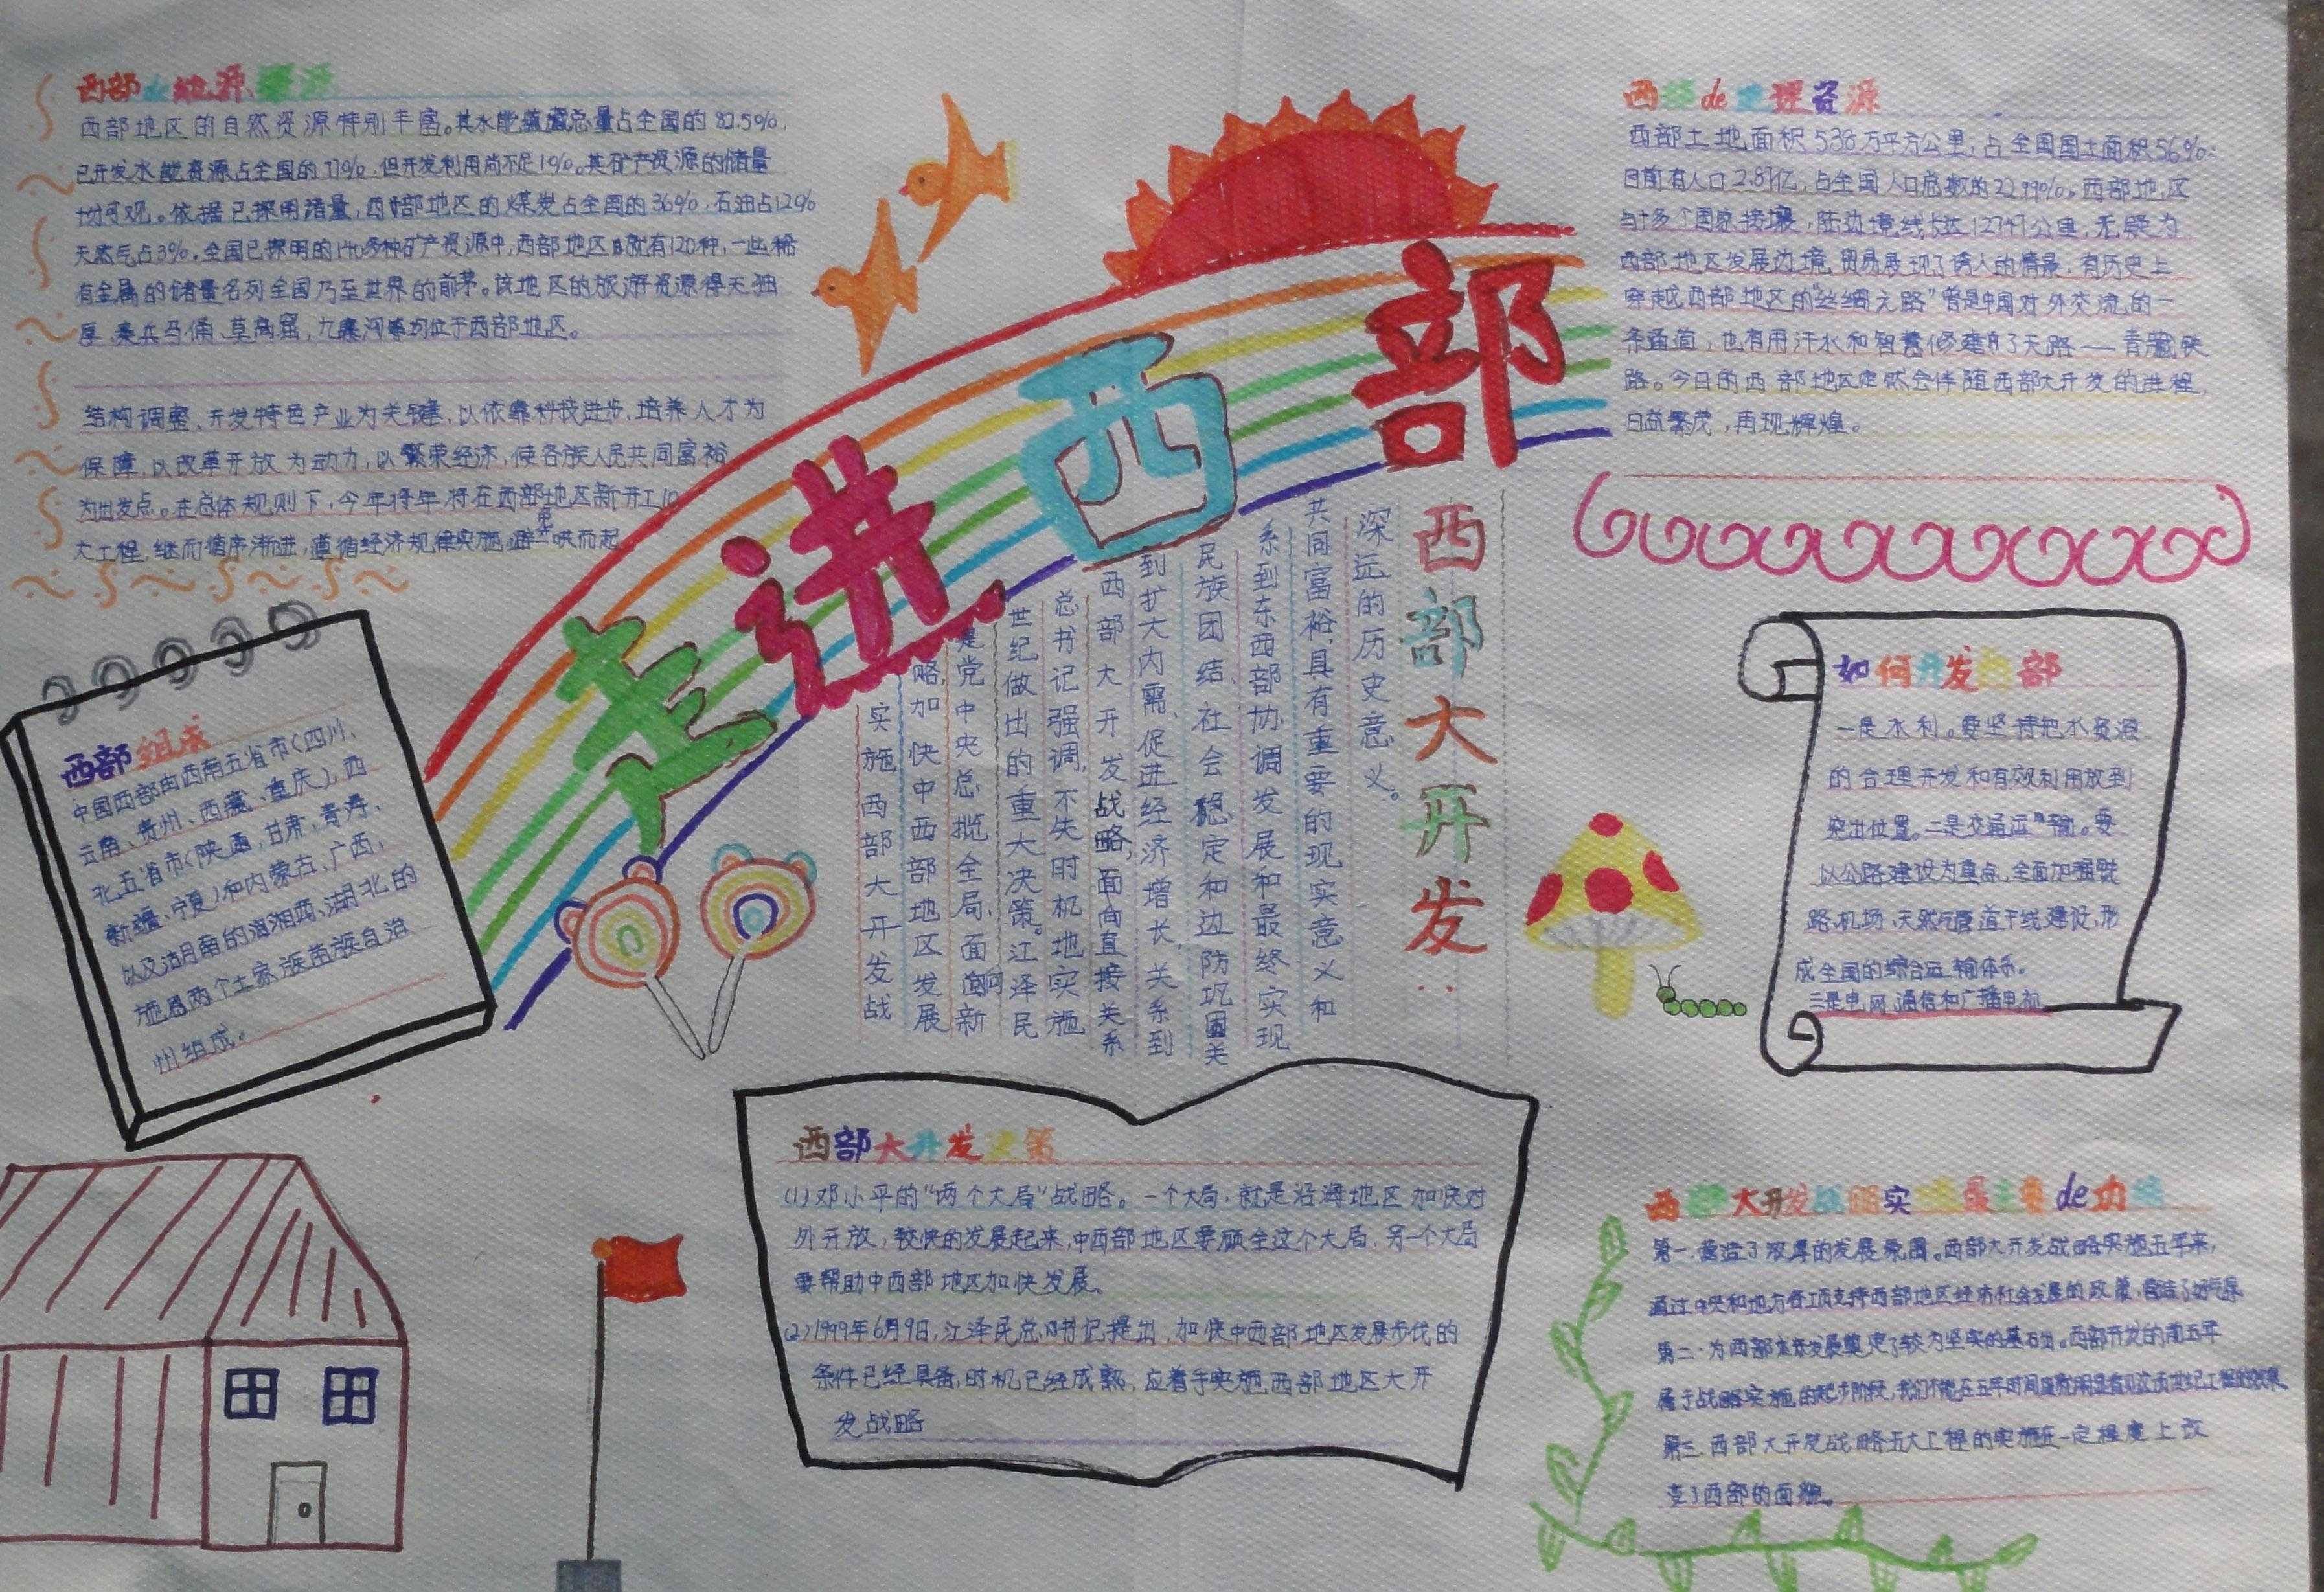 走进西部
西部地源
西部地区的自然资源特别丰富。其水能蕴藏总量占全国的82.5%,
已开发水能资源占全国的77%,但开发利用尚不足1%。其矿产资源的储量
均可观。依据已探明储量,西部地区的煤炭占全国的36%,石油占12%
天然气占3%。全国已探明的140多种矿产资源中,西部地区就有120种,一些稀
有金属的储量名列全国乃至世界的前茅。该地区的旅游资源得天独
厚,秦兵马俑、莫高窟,九寨沟等均位于西部地区。
结构调整,开发特色产业为关键,以依靠科技进步,培养人才为
保障,以改革开放为动力,以繁荣经济,使各族人民共同富裕
为出发点。在总体规则下,今年将在西部地区新开工10
大工程,继而循序渐进,遵循经济规律实施,避免一哄而起
西部组成
中国西部由西南五省市(四川、
云南、贵州、西藏、重庆),西
北五省市(陕西,甘肃,青海、
新疆、宁夏)和内蒙古、广西,
以及湖南的湘西、湖北的
施恩两个土家族苗族自治
州组成。
西部大开发
深远的历史意义。
共同富裕,具有重要的现实意义和
系到东西部协调发展和最终实现
民族团结、社会稳定和边防巩固关
到扩大内需,促进经济增长,关系到
西部大开发战略,面向直接关系
总书记强调,不失时机地实施
世纪做出的重大决策。江泽民
是党中央总揽全局、面向新
略,加快中西部地区发展
实施西部大开发战
西部大开发决策
(1)邓小平的“两个大局”战略。一个大局,就是沿海地区加快对
外开放,较快的发展起来,中西部地区要顾全这个大局,另一个大局
要帮助中西部地区加快发展。
(2)1999年6月9日,江泽民总书记提出,加快中西部地区发展步伐的
条件已经具备,时机已经成熟,应着手实施西部地区大开
发战略
西部de地理资源
西部土地面积538万平方公里,占全国国土面积56%;
目前有人口2.87亿,占全国人口总数的22.99%。西部地区
与十多个国家接壤,陆边境线长达12747公里,无疑为
西部地区发展边境贸易展现了诱人的情景,有历史上
穿越西部地区的“丝绸之路”曾是中国对外交流的一
条通道,也有用汗水和智慧修建的了天路——青藏铁
路。今日的西部地区定然会伴随西部大开发的进程,
日益繁茂,再现辉煌。
如何开发西部
一是水利。要坚持把水资源
的合理开发和有效利用放到
突出位置。二是交通运输。要
以公路建设为重点,全面加强铁
路、机场、天然气管道干线建设,形
成全国的综合运输体系。
三是电网、通信和广播电视
西部大开发战略实施最主要de功绩
第一,营造了浓厚的发展氛围。西部大开发战略实施五年来,
通过中央和地方各项支持西部地区经济社会发展的政策,营造了好气氛
第二,为西部发展奠定了较为坚实的基石出。西部开发的前五年
属于战略实施的起步阶段,我们不能在五年时间里就明显看见这项世纪工程的效果
第三,西部大开发战略五大工程的实施在一定程度上改
变了西部的面貌。